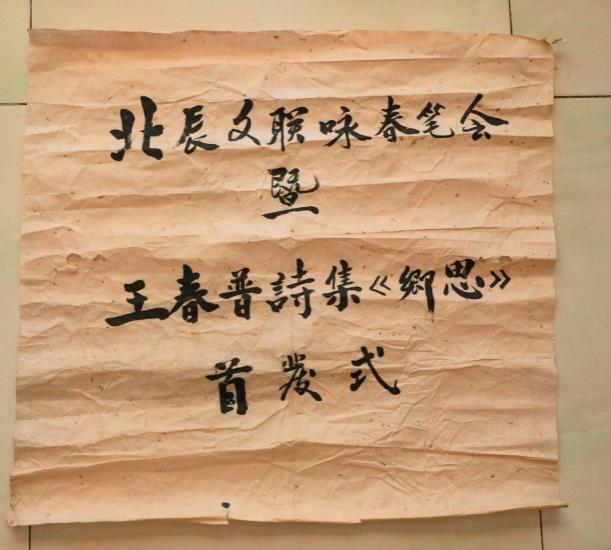 北辰文联咏春笔会
暨
王春普詩集《鄉思》
首发式